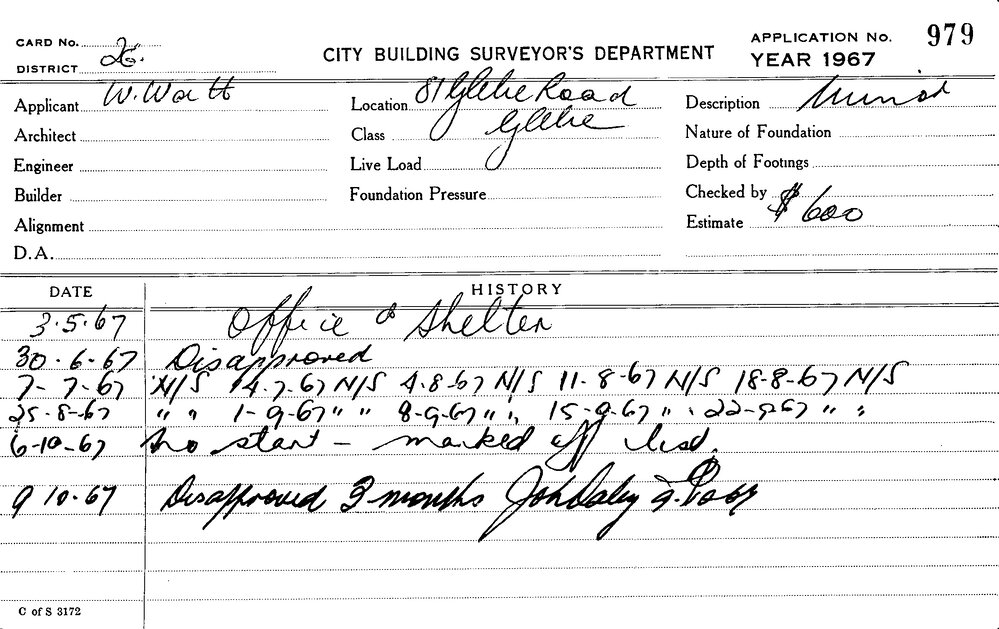 CARD No.
DISTRICT 26.
CITY BUILDING SURVEYOR'S DEPARTMENT
APPLICATION No. 979
YEAR 1967
Applicant W. Watt
Location 81 Glebe Road
Glebe
Description Minor
Architect
Class
Nature of Foundation
Engineer
Live Load
Depth of Footings
Builder
Foundation Pressure
Checked by
Alignment
Estimate $600
D.A.
DATE HISTORY
3.5.67 Office & Shelter
30.6.67 Disapproved
7-7-67 N/S 14.7.67 N/S 4.8.67 N/S 11-8-67 N/S 18-8-67 N/S
25-8-67 " " 1-9-67 " " 8-9-67 " " 15-9-67 " " 22-9-67 " "
6-10-67 No start - marked off list.
9 10.67 Disapproved 3 months John Daley
C of S 3172